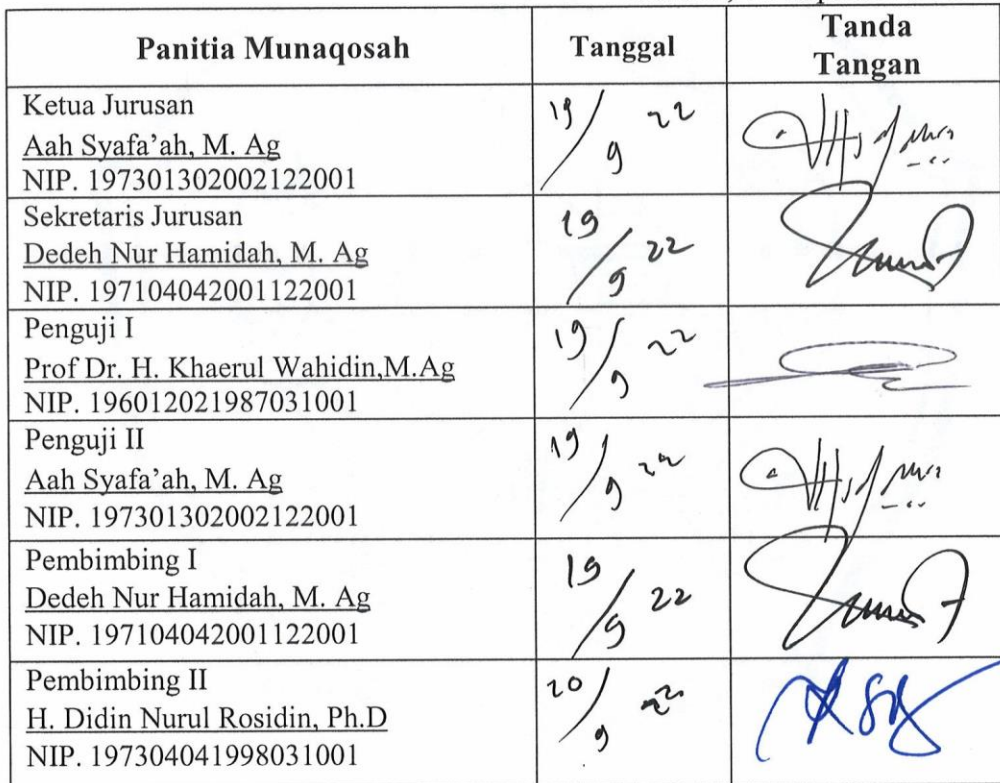 Panitia Munaqosah
Tanggal
Tanda
Tangan
Ketua Jurusan
Aah Syafa'ah, M. Ag
NIP. 197301302002122001
19/9 22
Sekretaris Jurusan
Dedeh Nur Hamidah, M. Ag
NIP. 197104042001122001
19/9 22
Penguji I
Prof Dr. H. Khaerul Wahidin,M.Ag
NIP. 196012021987031001
19/9 22
Penguji II
Aah Syafa'ah, M. Ag
NIP. 197301302002122001
19/9 22
Pembimbing I
Dedeh Nur Hamidah, M. Ag
NIP. 197104042001122001
19/9 22
Pembimbing II
H. Didin Nurul Rosidin, Ph.D
NIP. 197304041998031001
20/9 22